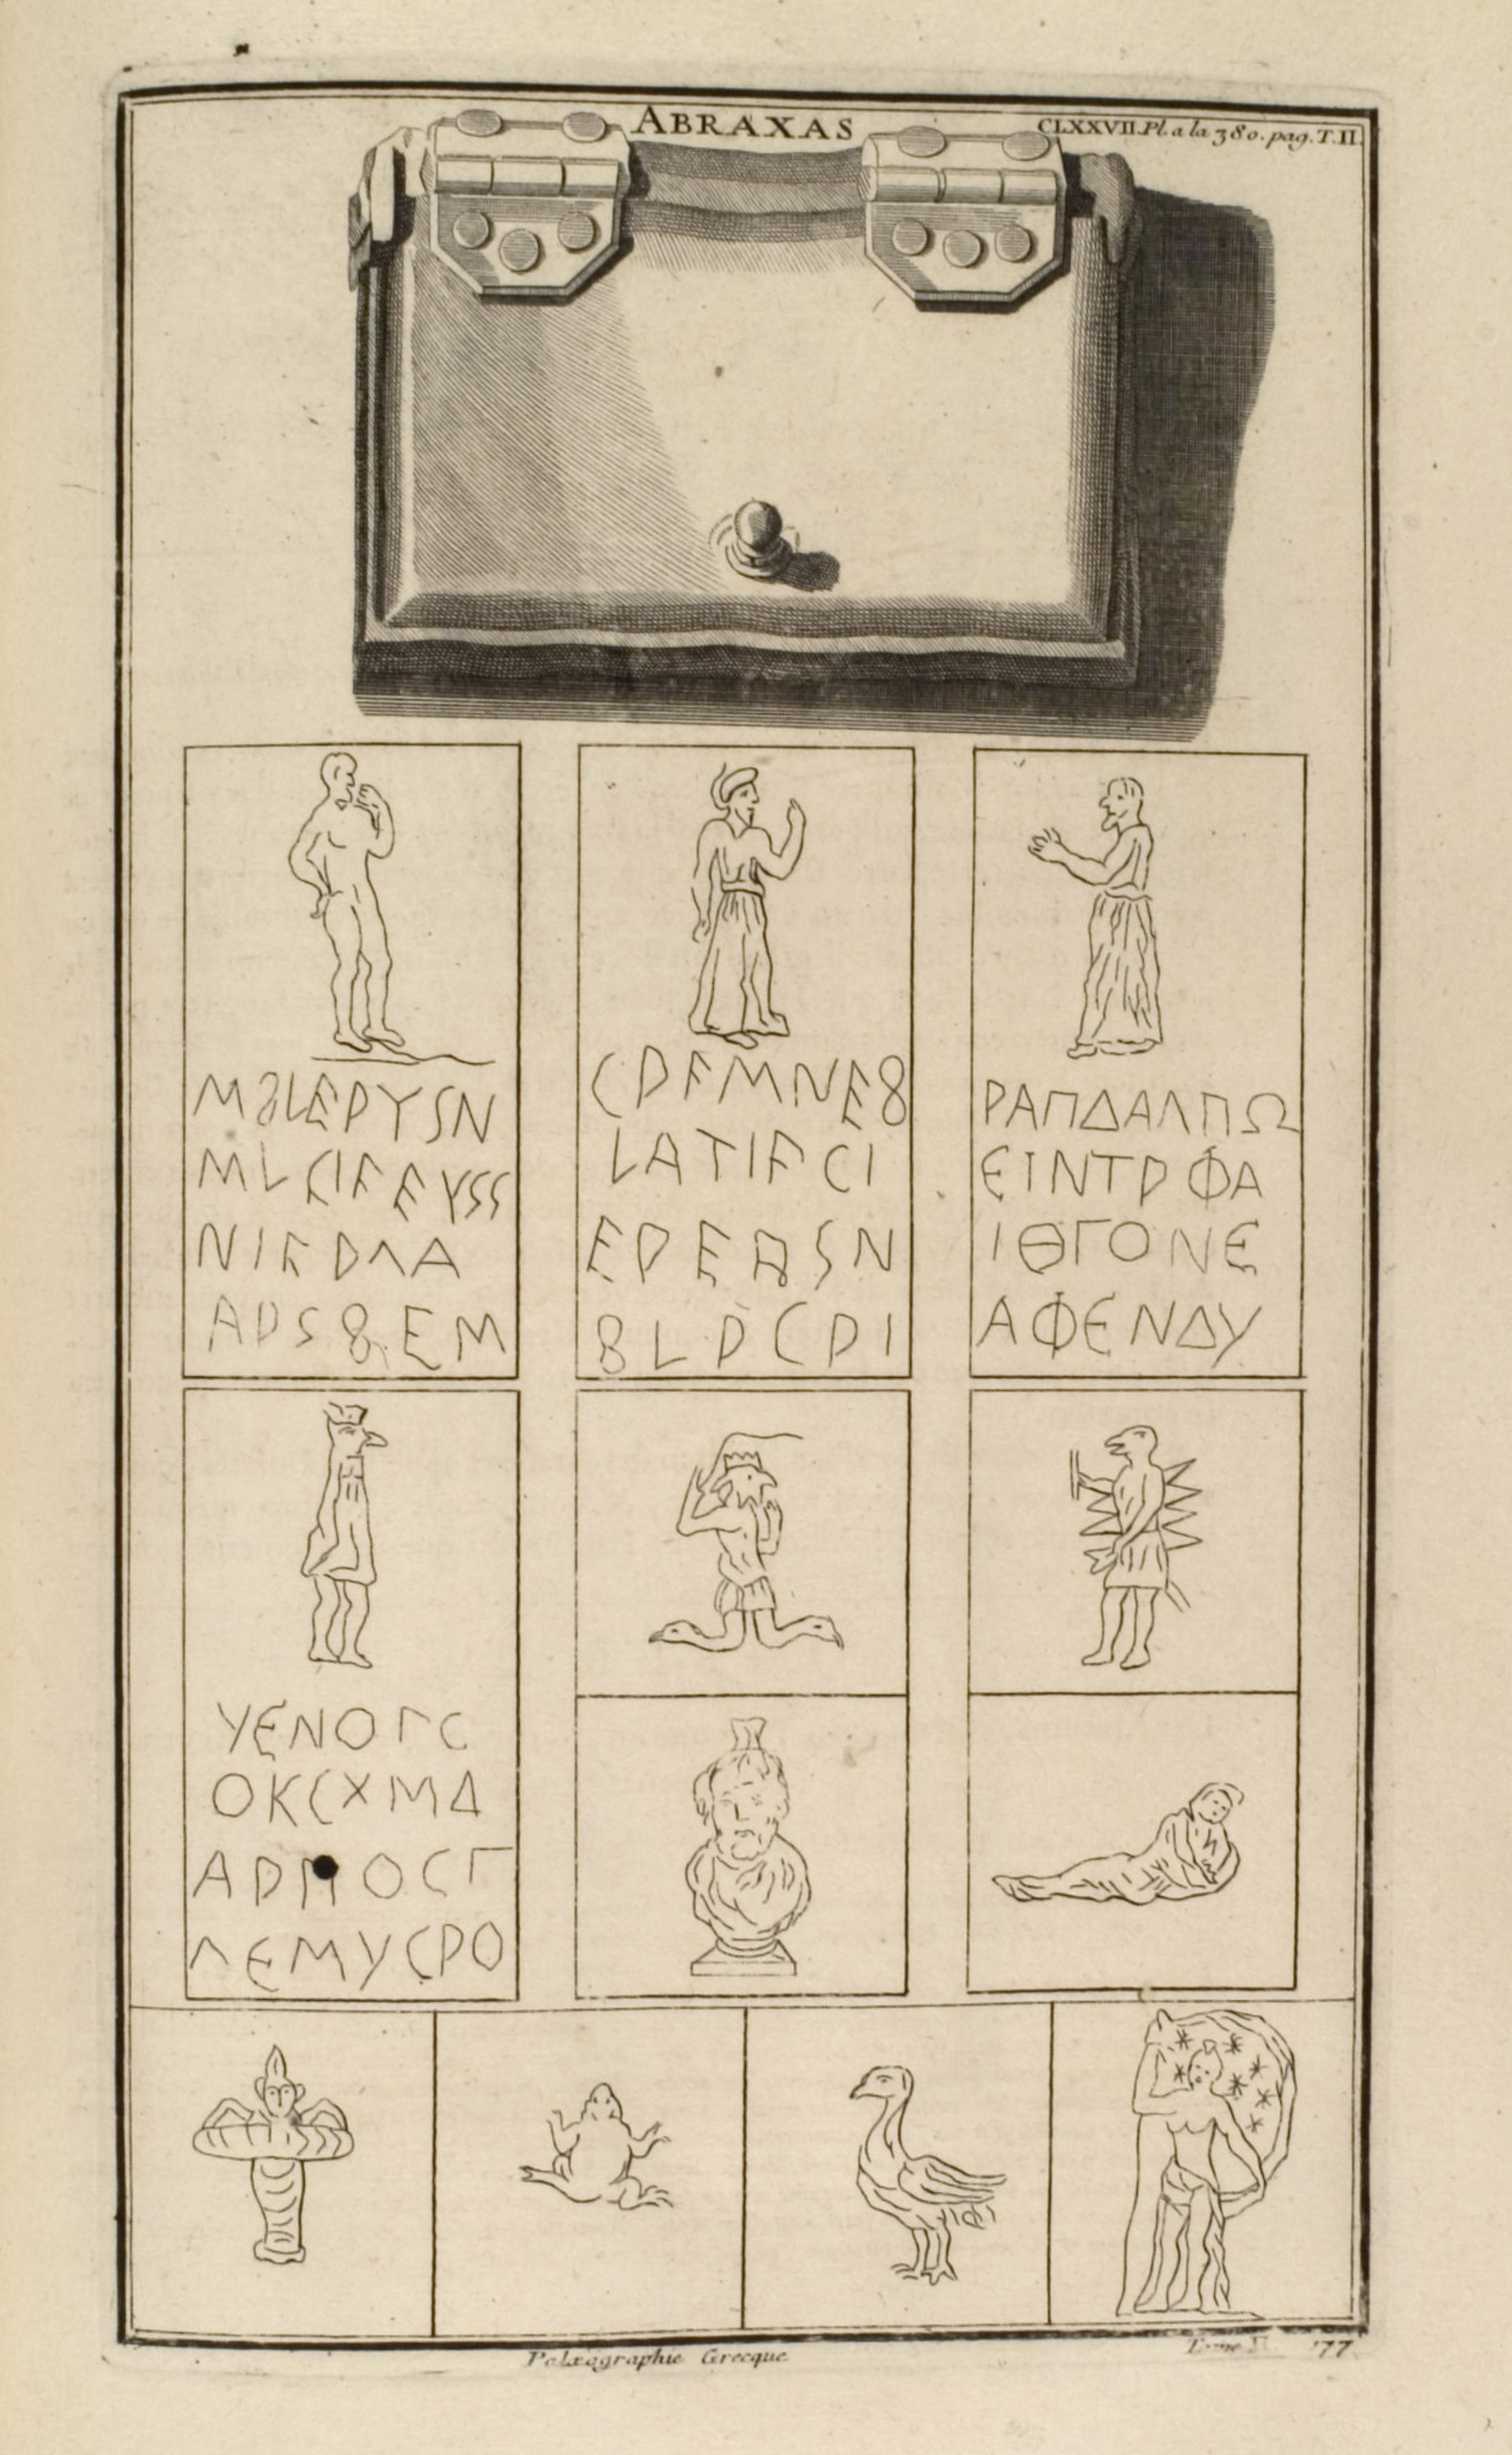 ABRAXAS
CLXXVII. Pl. a la 380. pag. T. II.
M8LEPYSN
NIFDΛA
APS8EM
CDFMNE8
LATIFCI
8LDCDI
ΡΑΠΔΑΛΠΩ
ЄΙΝΤΡΦΑ
ΙΘΓΟΝЄ
ΑΦЄΝΔΥ
ΥЄΝΟΓC
ΟΚCΧΜΔ
ΛЄΜΥCΡΟ
Palæographie Grecque
Tome II 77